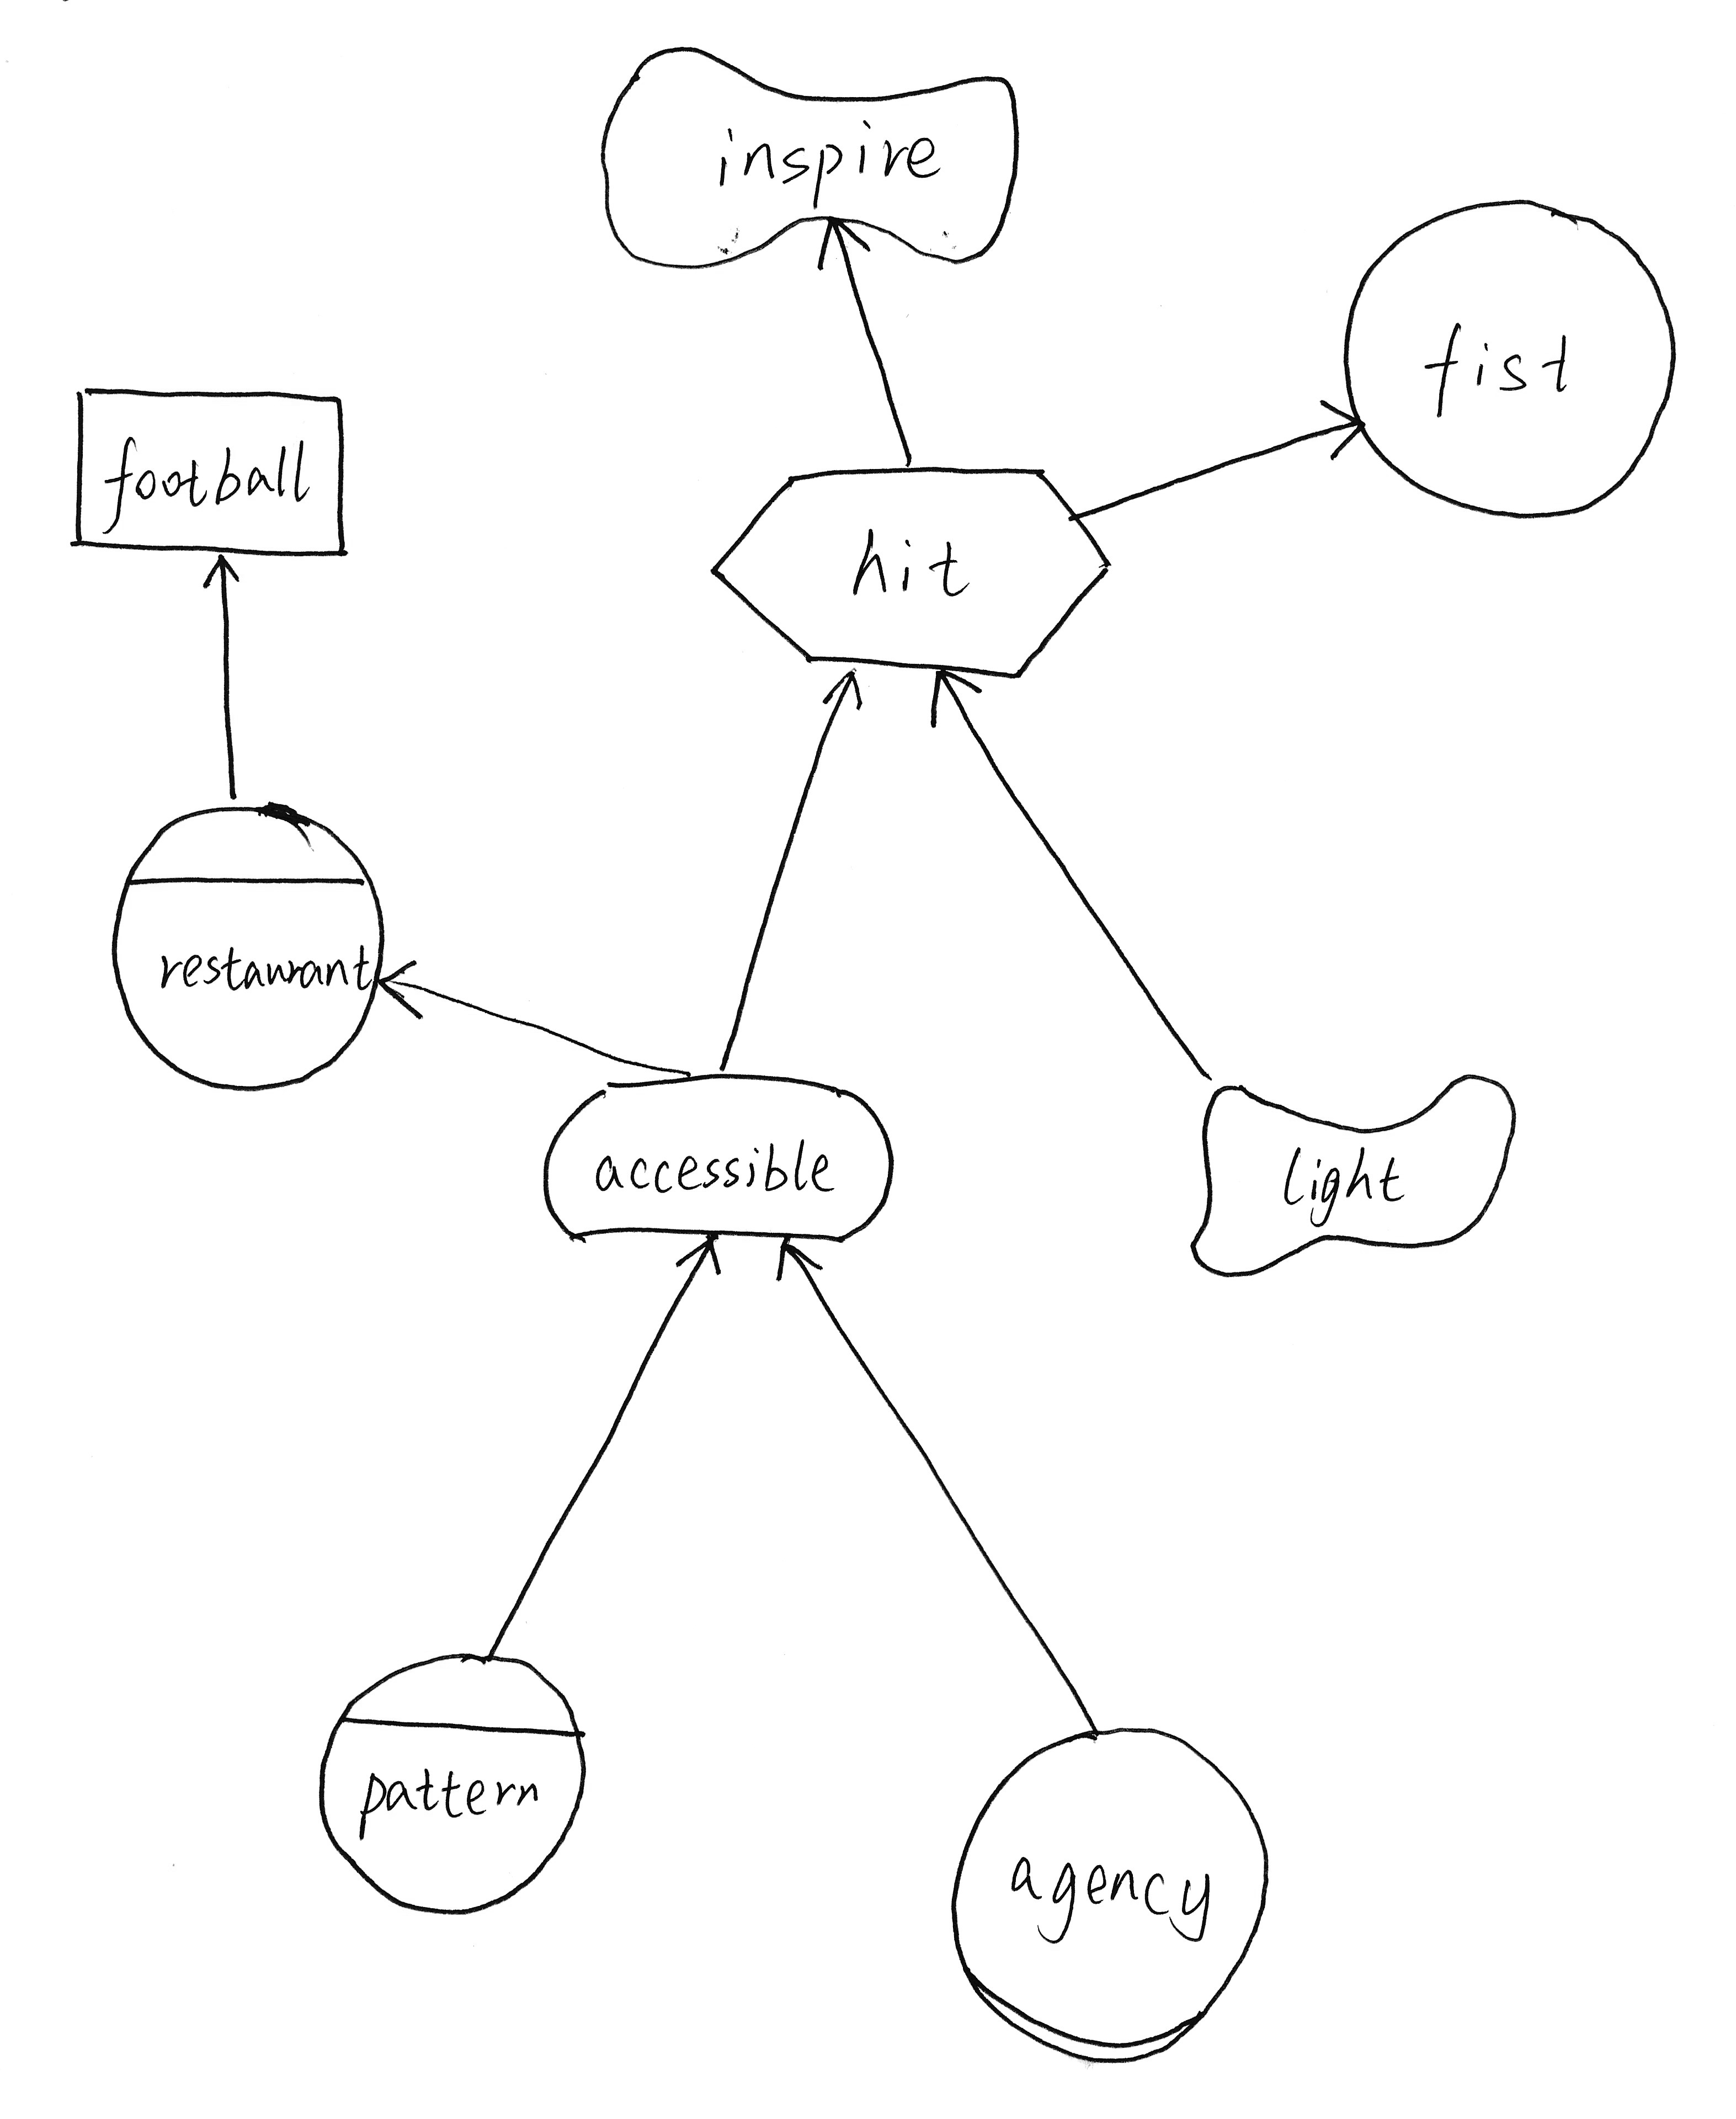 inspire
fist
football
hit
restaurant
accessible
light
pattern
agency